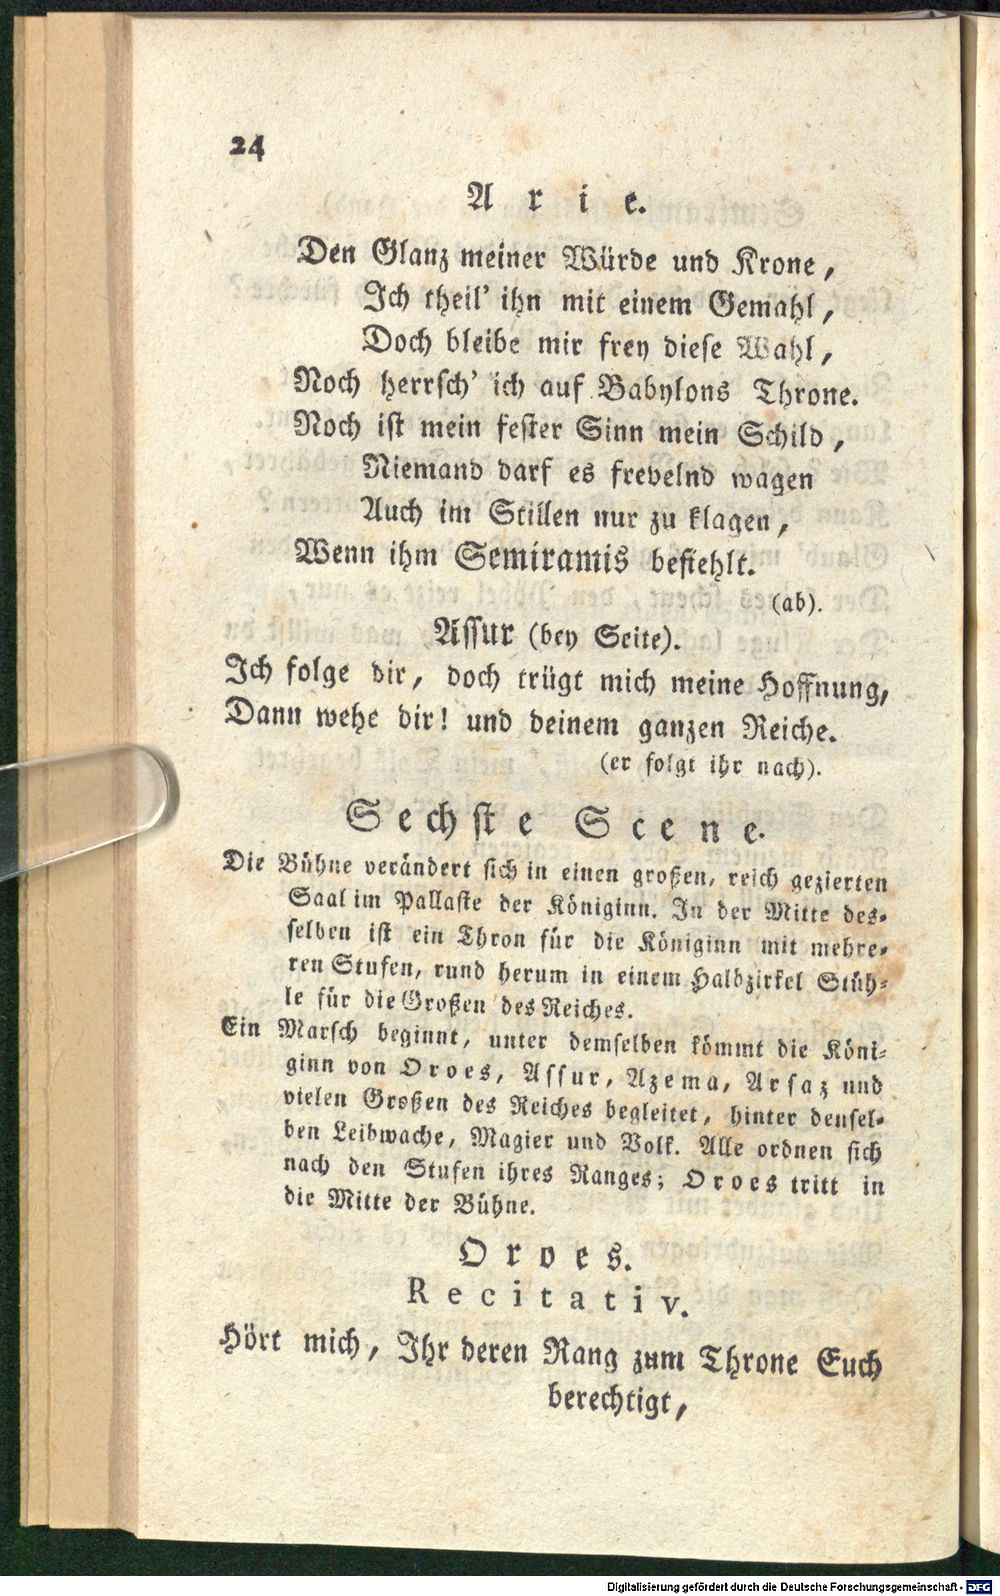 24
Arie.
Den Glanz meiner Würde und Krone,
Ich theil' ihn mit einem Gemahl,
Doch bleibe mir frey diese Wahl,
Noch herrsch' ich auf Babylons Throne.
Noch ist mein fester Sinn mein Schild,
Niemand darf es frevelnd wagen
Auch im Stillen nur zu klagen,
Wenn ihm Semiramis befiehlt.
(ab).
Assur (bey Seite).
Ich folge dir, doch trügt mich meine Hoffnung,
Dann wehe dir! und deinem ganzen Reiche.
(er folgt ihr nach).
Sechste Scene.
Die Bühne verändert sich in einen großen, reich gezierten
Saal im Pallaste der Königinn. In der Mitte des-
selben ist ein Thron für die Königinn mit mehre-
ren Stufen, rund herum in einem Halbzirkel Stüh-
le für die Großen des Reiches.
Ein Marsch beginnt, unter demselben kömmt die Köni-
ginn von Oroes, Assur, Azema, Arsaz und
vielen Großen des Reiches begleitet, hinter densel-
ben Leibwache, Magier und Volk. Alle ordnen sich
nach den Stufen ihres Ranges; Oroes tritt in
die Mitte der Bühne.
Oroes.
Recitativ.
Hört mich, Ihr deren Rang zum Throne Euch
berechtigt,
Digitalisierung gefördert durch die Deutsche Forschungsgemeinschaft - DFG